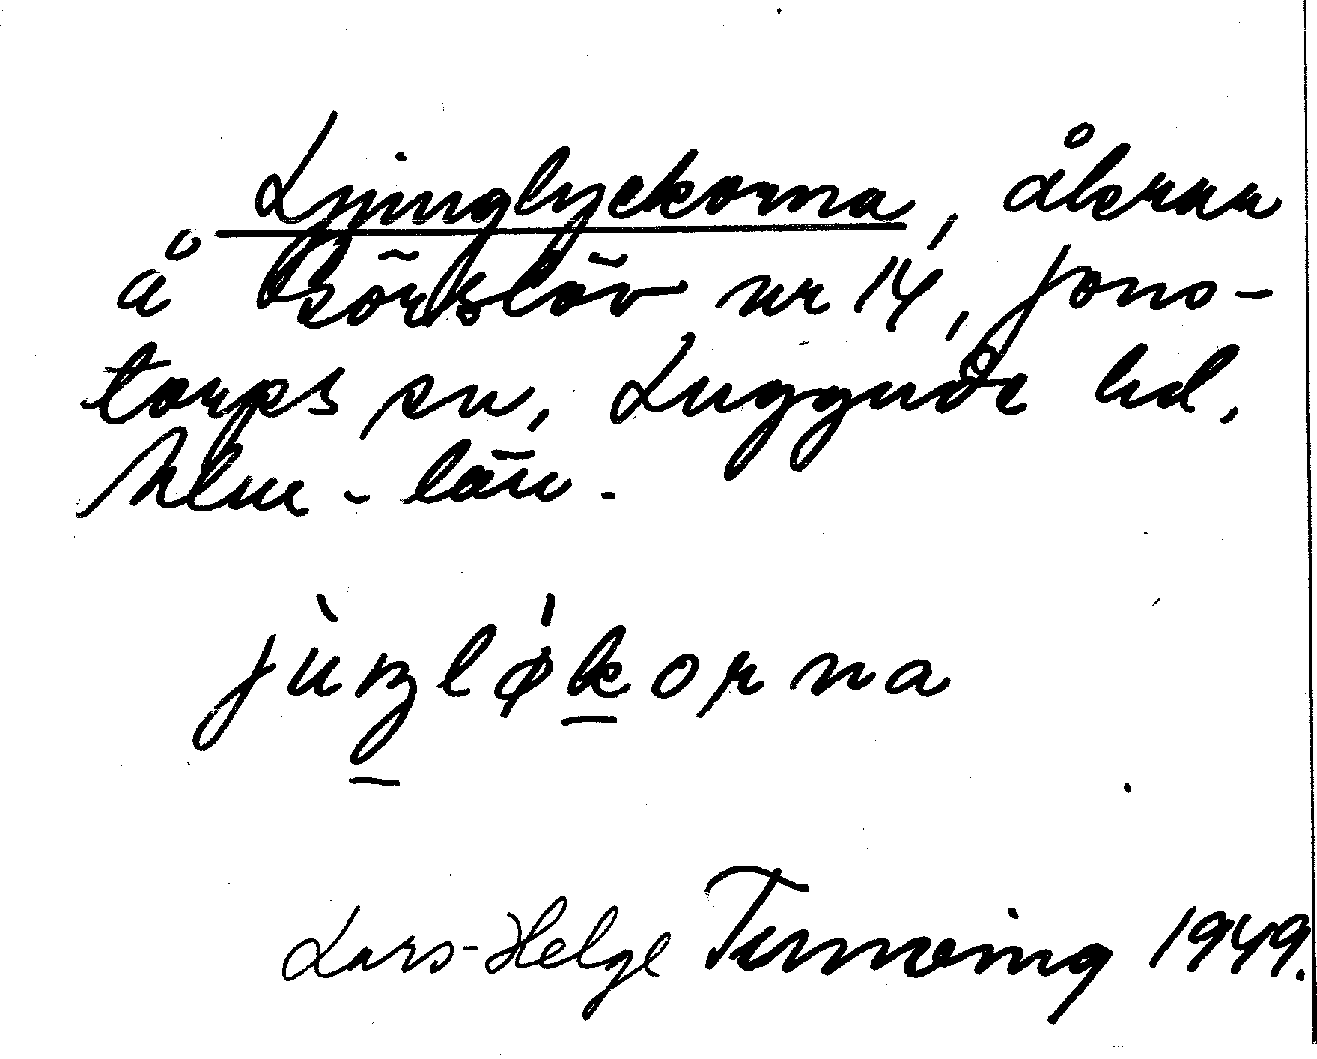 Ljunglyckorna, åkrar
å Görslöv nr 14, Jons-
torps sn, Luggude hd,
Mlm-län.
jùŋlǿkorna
Lars-Helge Turnving 1949.